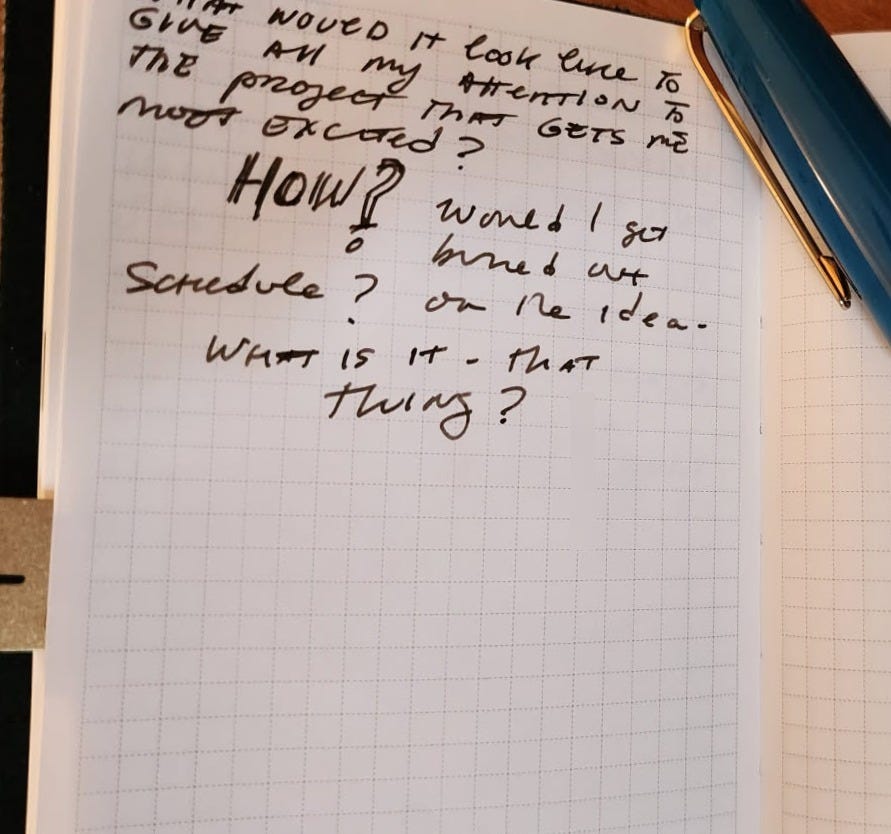 WHAT WOULD IT look like TO
GIVE All my ATTENTION TO
THE project THAT GETS ME
most EXCITED?
HOW?
Would I get
burned out
on the idea.
Schedule?
WHAT IS IT - THAT
THING?